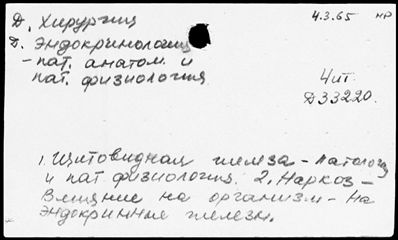 Д. Хирургия
4.3.65 НР
Д. Эндокринология
- пат. анатом. и
пат. физиология
Чит.
Д33220.
1. Щитовидная железа - патология
и пат. физиология. 2. Наркоз -
Влияние на организм - На
эндокринные железы.